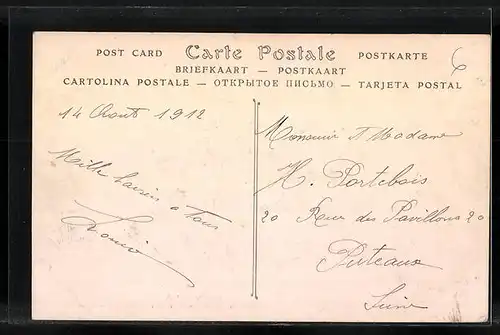 POST CARD Carte Postale POSTKARTE
BRIEFKAART — POSTKAART
CARTOLINA POSTALE — ОТКРЫТОЕ ПИСЬМО — TARJETA POSTAL
6
14 Aout 1912
Mille baisers a Tous
Monsieur et Madame
H. Portebois
20 Rue des Pavillons 20
Puteaux
Seine